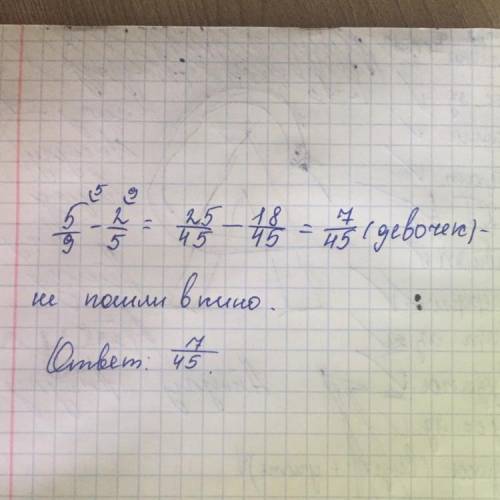 5/9 ⁵⌣ - 2/5 ⁹⌣ = 25/45 - 18/45 = 7/45 (девочек) -
не пошли в кино.
Ответ: 7/45.